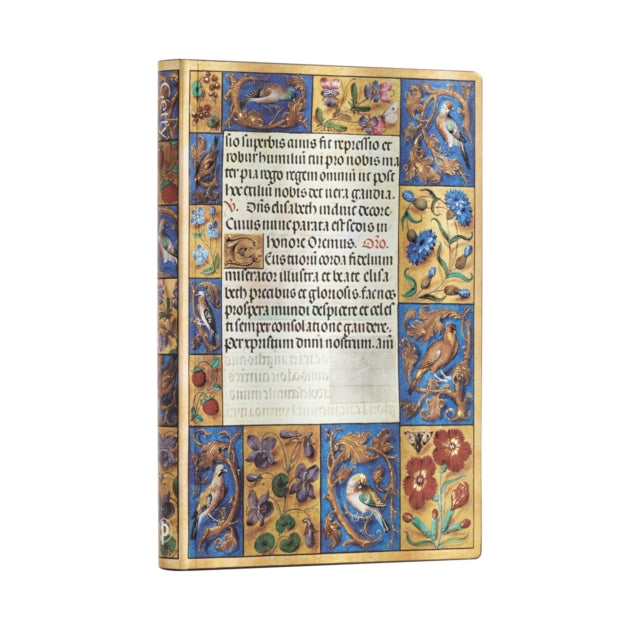 Getty
sio superbis ainis fit repressio et
robur humiliū tui pro nobis ma
ter pia rego regem omniū ut post
hoc exiliū nobis det vera gaudia.
V. Dñs elisabeth induit decore
Cuius nunc parata est sedis in
honore Oremus. Oro.
Eus tuorū corda fidelium
miserator illustra et beate elisa
beth precibus et gloriosis fac nos
prospera mundi despicere et celes
ti semper consolatione gaudere.
Per xpristum dn̄m nostrum. am̄